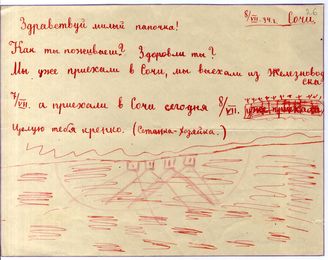 26
8/VII-34г. Сочи.
Здравствуй милый папочка!
Как ты поживаешь? Здоровли ты?
Мы уже приехали в Сочи, мы выехали из Железновод
ска
7/VII. а приехали в Сочи сегодня 8/VII.
Целую тебя крепко. (Сетанка-хозяйка.)